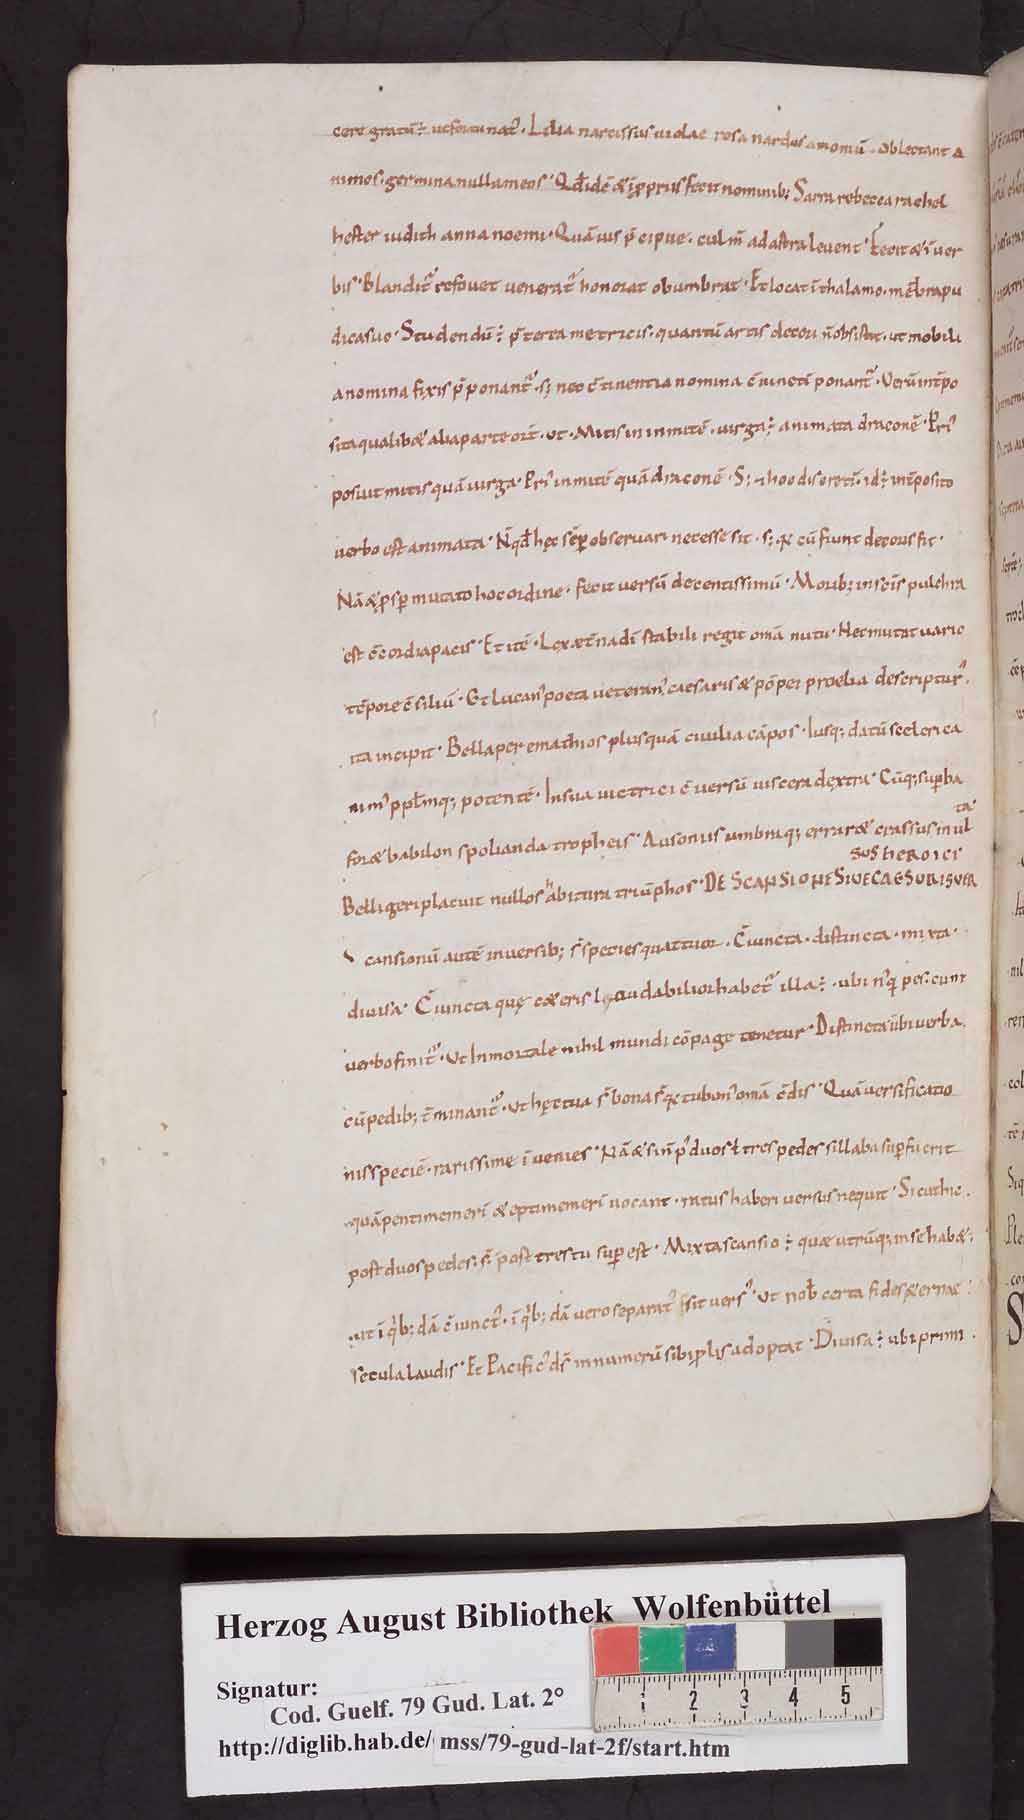 cere gratū÷ ut fortunat᾽. Lilia narcissus uiolae rosa nardus amomū. oblectant a
nimos. germina nulla meos. Qđ idē & ī ꝓpriis fecit nominib; Sarra rebecca rachel
hester iudith anna noemi. Quāuis p̄cipue. culm̄ ad astra leuent. Fecit & ī uer
bis. Blandit᾽ refouet uenerat᾽ honorat obumbrat. Et locat ī thalamo. mēbra pu
dica suo. Studendū÷ p̄terea metricis. quantū artis decori n̄ obsistit. ut mobili
a nomina fixis p̄ponant᾽. s; nec c̄tinentia nomina c̄iuncti ponant᾽. Verū int̄po
sita qualib& alia parte or̄t. ut. Mitis in inmitē. uirga÷ animata draconē. Pri᾽
posuit mitis quā uirga. Pri᾽ inmitē quā draconē. S; & hoc discreti. id÷ int̄posito
uerbo est animata. N̄ qđ hęc sēp obseruari necesse sit. s; q̨ cū fiunt decous fit.
Nā & ꝓsp mutato hoc ordine. fecit uersū decentissimū. Morib; in sc̄is pulchra
est c̄cordia pacis. Et itē. Lex æt̄na dī stabili regit om̄a nutu. Nec mutat uario
tēpore c̄siliū. Et Lucan᾽ poeta ueteran᾽ caesaris & pōpei proelia descriptur᾽.
ita incipit. Bella per emathios plus quā ciuilia cāpos. Iusq; datū sceleri ca
nim᾽ ppl̄mq; potentē. In sua uictrici c̄uersū uiscera dextra. Cūq; supba
for& babilon spolianda tropheis. Ausoniis umbraq; errar& crassus inul
ta
Bella geri placuit nullos habitura triūphos. DE SCANSIONE SIVE CAESURIS VER
SUS HEROICI
Scansionū autē in uersib; s̄ species quattuor. C̄iuncta. distincta. mixta.
diuisa. C̄iuncta quę c&eris laudabilior habet᾽ illa÷. ubi n̄q̇ pes. cum
uerbo finit᾽. Ut Inmortale nihil mundi cōpage tenetur. Distincta ubi uerba.
cū pedib; t̄minant᾽. Ut hęc tua s̄ bona s̄ q̨ tu bon᾽ om̄a c̄dis. Quā uersificatio
nis speciē. rarissime īuenies. Nā & si n̄ p᾽ duos ł tres pedes sillaba supfuerit
quā pentimemerī & eptimemerī uocant. ratus haberi uersus nequit. Sicut hic.
post duos pedes. s̄. post tres tu sup est. Mixta scansio÷ quae utrūq; in se hab&.
ut ī q̇b; dā c̄iunct᾽. ī q̇b; dā uero separat᾽ sit uers᾽. Ut nob̄ certa fides &ernae
secula laudis. Et Pacific᾽ ds̄ in numerū sibi ꝓlis adoptat. Diuisa÷ ubi primi
Herzog August Bibliothek Wolfenbüttel
Signatur:
Cod. Guelf. 79 Gud. Lat. 2°
http://diglib.hab.de/ mss/79-gud-lat-2f/start.htm
1 2 3 4 5